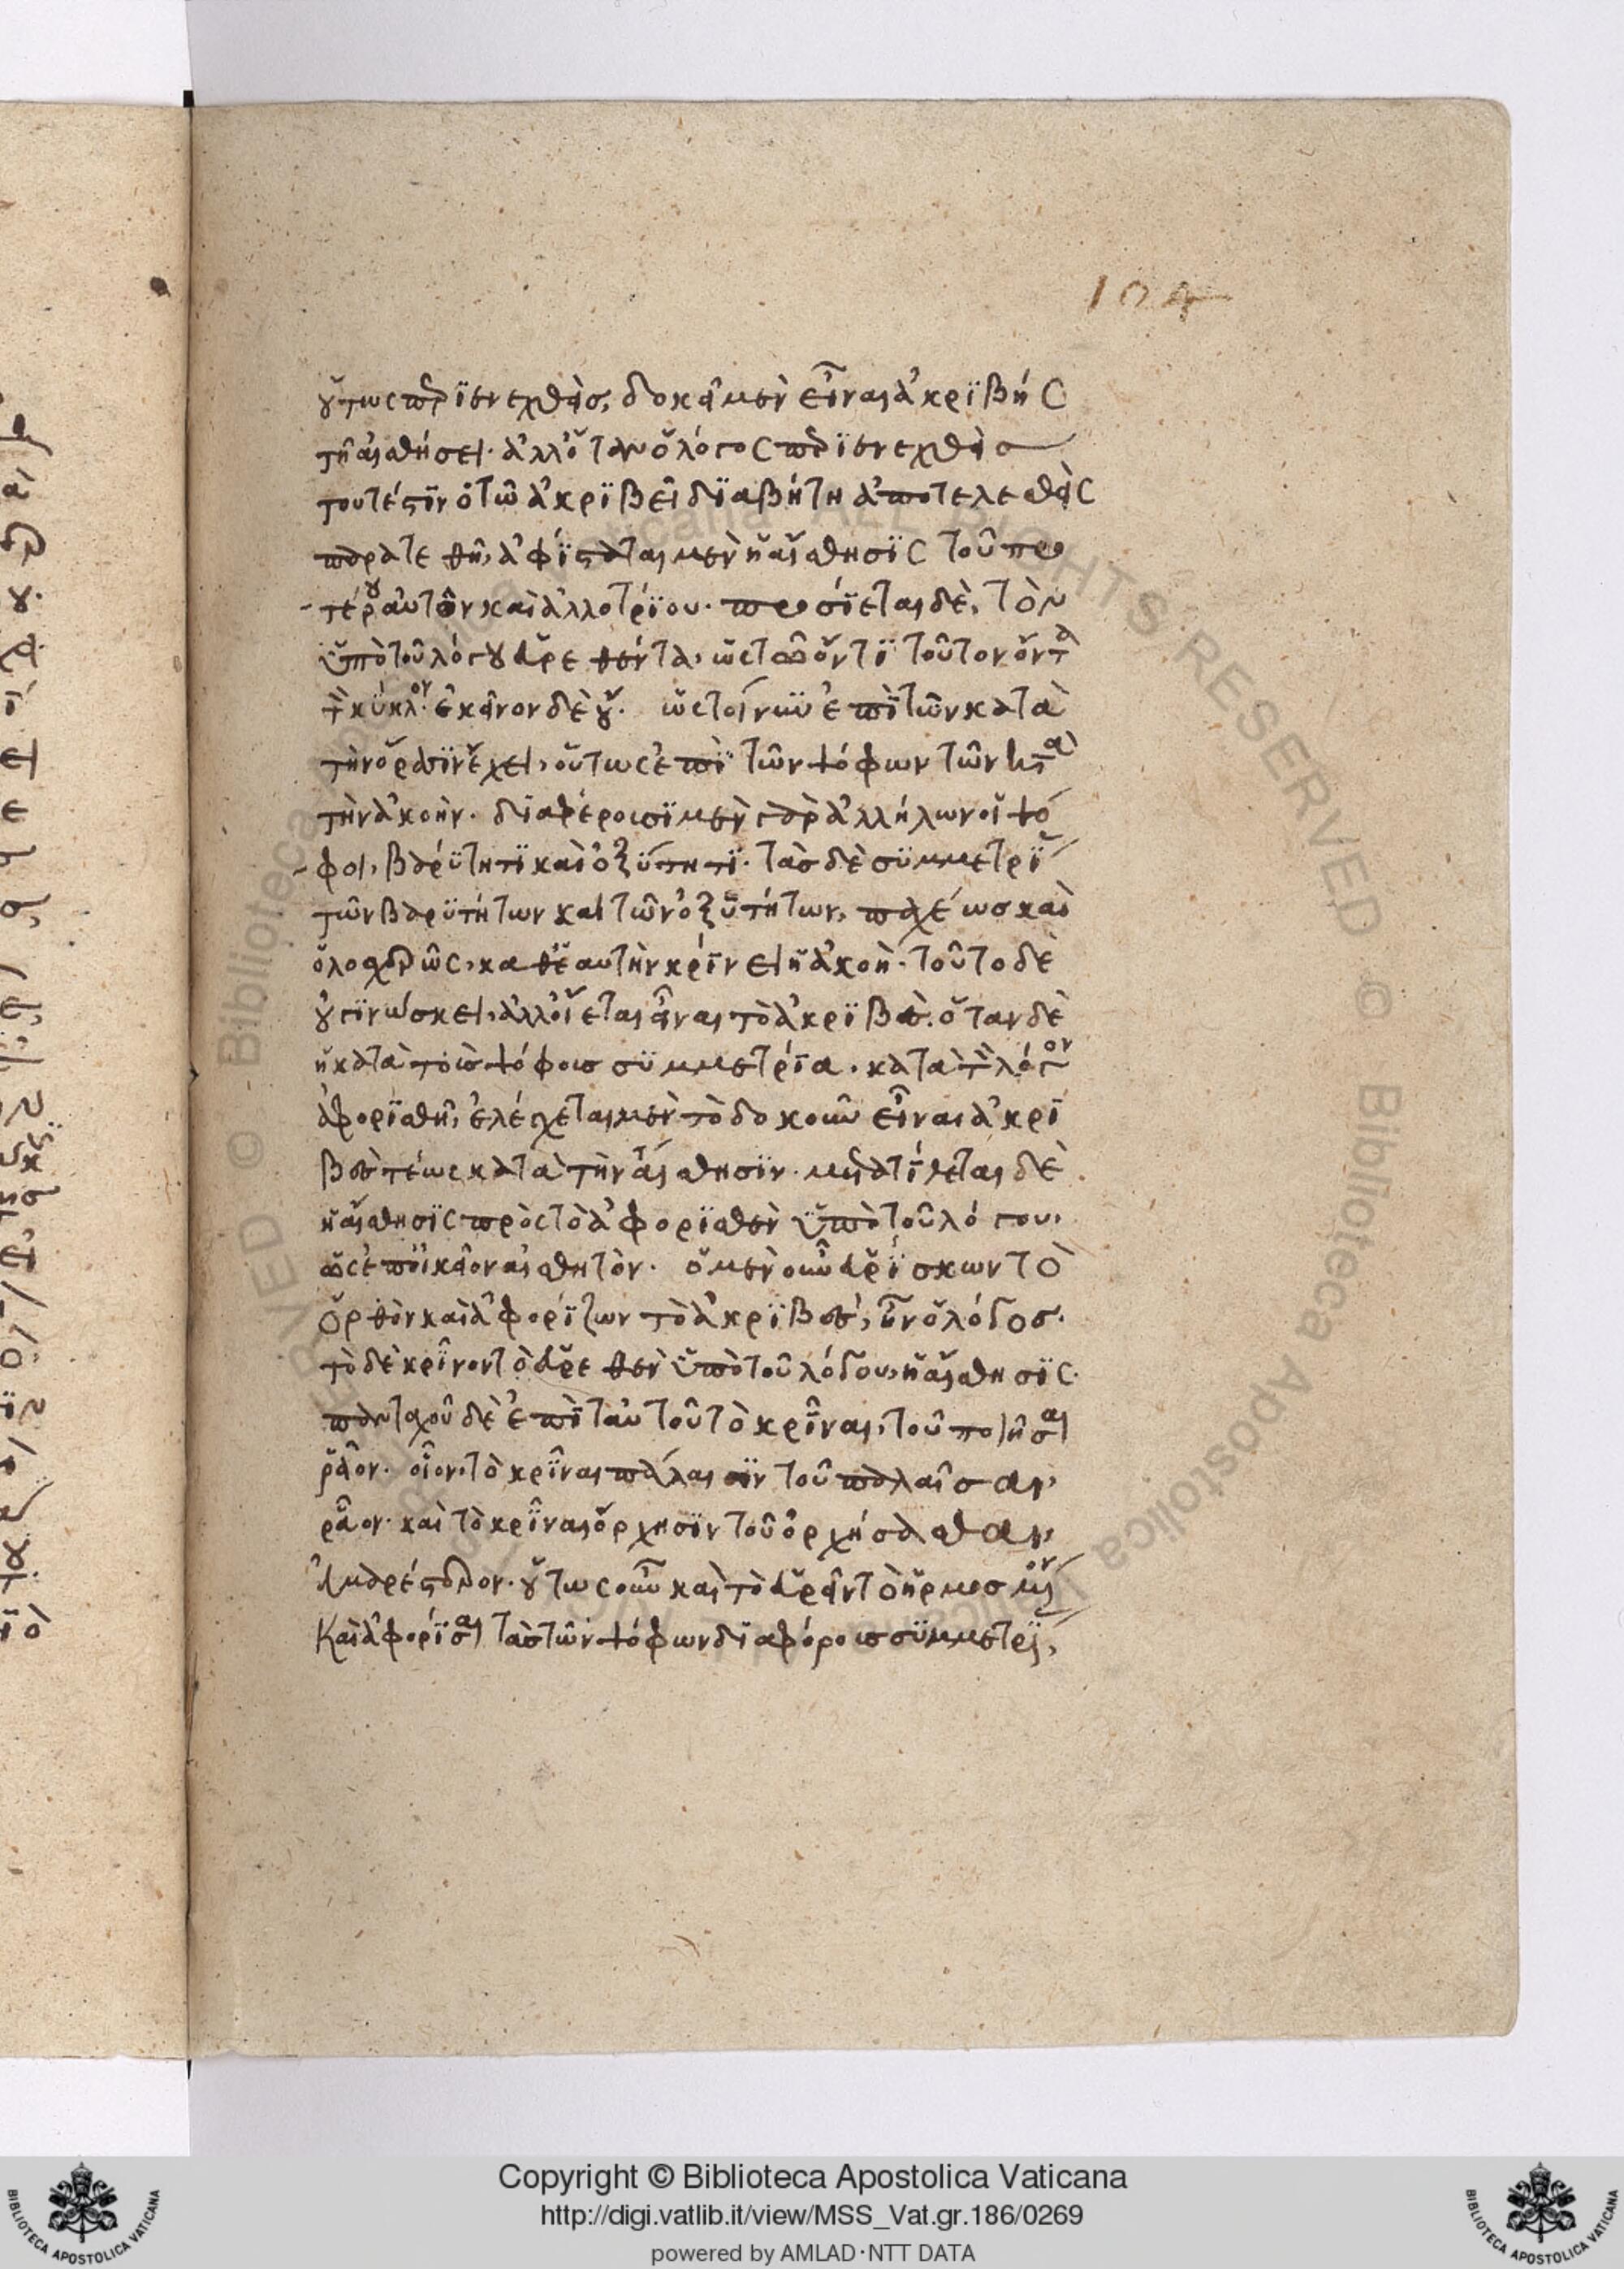 104
οὕτως περιενεχθεὶς, δοκεῖ μὲν εἶναι ἀκριβής
τῇ αἰσθήσει. ἀλλ' ὅταν ὁ λόγος περιενεχθεὶς
τουτέστιν ὁ τῶ ἀκριβεῖ διαβήτη ἀποτελεσθεὶς
παρατεθῆ, ἀφίσταται μὲν ἡ αἴσθησις τοῦ προ
τέρου αὐτῶν καὶ ἀλλοτρίου. προσίεται δὲ, τὸν
ὑπὸ τοῦ λόγου εὑρεθέντα, ὡς τῶ ὄντι τοῦτον ὄντα
τὸν κύκλον. ἐκεῖνον δὲ οὔ. ὡς τοίνυν ἐπὶ τῶν κατὰ
τὴν ὅρασιν ἔχει, οὕτως ἐπὶ τῶν ψόφων τῶν κατὰ
τὴν ἀκοήν. διαφέρουσι μὲν γὰρ ἀλλήλων οἱ ψό
φοι, βαρύτητι καὶ ὀξύτητι. τὰς δὲ συμμετρί
τῶν βαρυτήτων καὶ τῶν ὀξυτήτων, παχέως καὶ
ὁλοσχερῶς, καθ' ἑαυτὴν κρίνει ἡ ἀκοή. τοῦτο δὲ
οὐ γινώσκει, ἀλλ' οἴεται εἶναι τὸ ἀκριβές. ὅταν δὲ
ἡ κατὰ τοὺς ψόφους συμμετρία. κατὰ τὸν λόγον
ἀφορισθῆ, ἐλέγχεται μὲν τὸ δοκοῦν εἶναι ἀκρι
βὲς τέως κατὰ τὴν αἴσθησιν. μετατίθεται δὲ
ἡ αἴσθησις πρὸς τὸ ἀφορισθὲν ὑπὸ τοῦ λόγου,
ὡς ἐπ' οἰκεῖον αἰσθητόν. ὁ μὲν οὖν εὑρίσκων τὸ
ὀρθὸν καὶ ἀφορίζων τὸ ἀκριβὲς, ἦν ὁ λόγος.
τὸ δὲ κρῖνον τὸ εὑρεθὲν ὑπὸ τοῦ λόγου, ἡ αἴσθησις.
πανταχοῦ δὲ ἐπὶ ταὐτοῦ τὸ κρῖναι, τοῦ ποιῆσαι
ρᾶον. οἷον, τὸ κρῖναι πάλαισιν τοῦ παλαῖσαι,
ρᾶον. καὶ τὸ κρῖναι ὄρχησιν τοῦ ὀρχήσασθαι,
εὐμαρέστερον. οὕτως οὖν καὶ τὸ εὑρεῖν τὸ ἡρμοσμένον
Καὶ ἀφορίσαι τὰς τῶν ψόφων διαφόρους συμμετρίας,
Copyright © Biblioteca Apostolica Vaticana
http://digi.vatlib.it/view/MSS_Vat.gr.186/0269
powered by AMLAD·NTT DATA